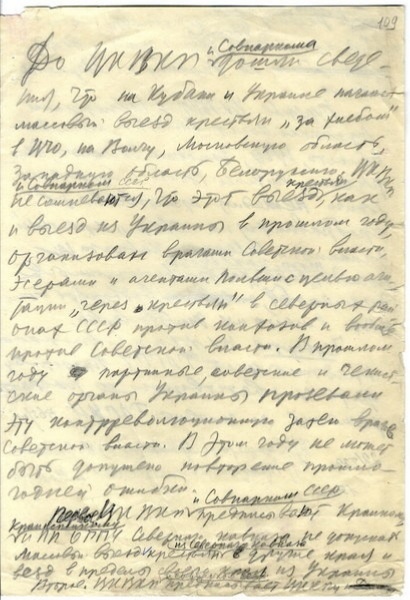 109
и Совнаркома
До ЦК ВКП дошли сведе-
ния, что на Кубани и Украине начался
массовый выезд крестьян „за хлебом"
в ЦЧО, на Волгу, Московскую область,
Западную область, Белоруссию. ЦК ВКП
и Совнарком СССР крестьян
не сомневаются, что этот выезд, как
и выезд из Украины в прошлом году,
организован врагами Советской власти,
эсерами и агентами Польши с целью аги-
тации „через крестьян" в северных рай-
онах СССР против колхозов и вообще
против Советской власти. В прошлом
году партийные, советские и чекист-
ские органы Украины прозевали
эту контрреволюционную затею врагов
Советской власти. В этом году не может
быть допущено повторение прошло-
годней ошибки.
и Совнарком СССР
Первое ЦК ВКП предписывают крайкому,
Крайисполкому
и ПП ОГПУ Северного Кавказа не допускать
массовый выезд крестьян из Северного Кавказа в другие края и
въезд в пределы края из Украины
Второе. ЦК ВКП предписывает ЦК КП